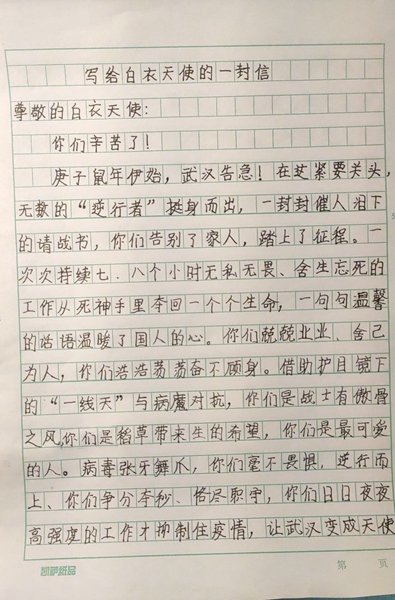 写给白衣天使的一封信
尊敬的白衣天使：
你们辛苦了！
庚子鼠年伊始，武汉告急！在这紧要关头，
无数的“逆行者”挺身而出，一封封催人泪下
的请战书，你们告别了家人，踏上了征程。一
次次持续七、八个小时无私无畏、舍生忘死的
工作从死神手里夺回一个个生命，一句句温馨
的话语温暖了国人的心。你们兢兢业业、舍己
为人，你们浩浩荡荡奋不顾身。借助护目镜下
的“一线天”与病魔对抗，你们是战士有傲骨
之风，你们是稻草带来生的希望，你们是最可爱
的人。病毒张牙舞爪，你们毫不畏惧，逆行而
上、你们争分夺秒、恪尽职守，你们日日夜夜
高强度的工作才抑制住疫情，让武汉变成天使
凯萨纸品
第 页